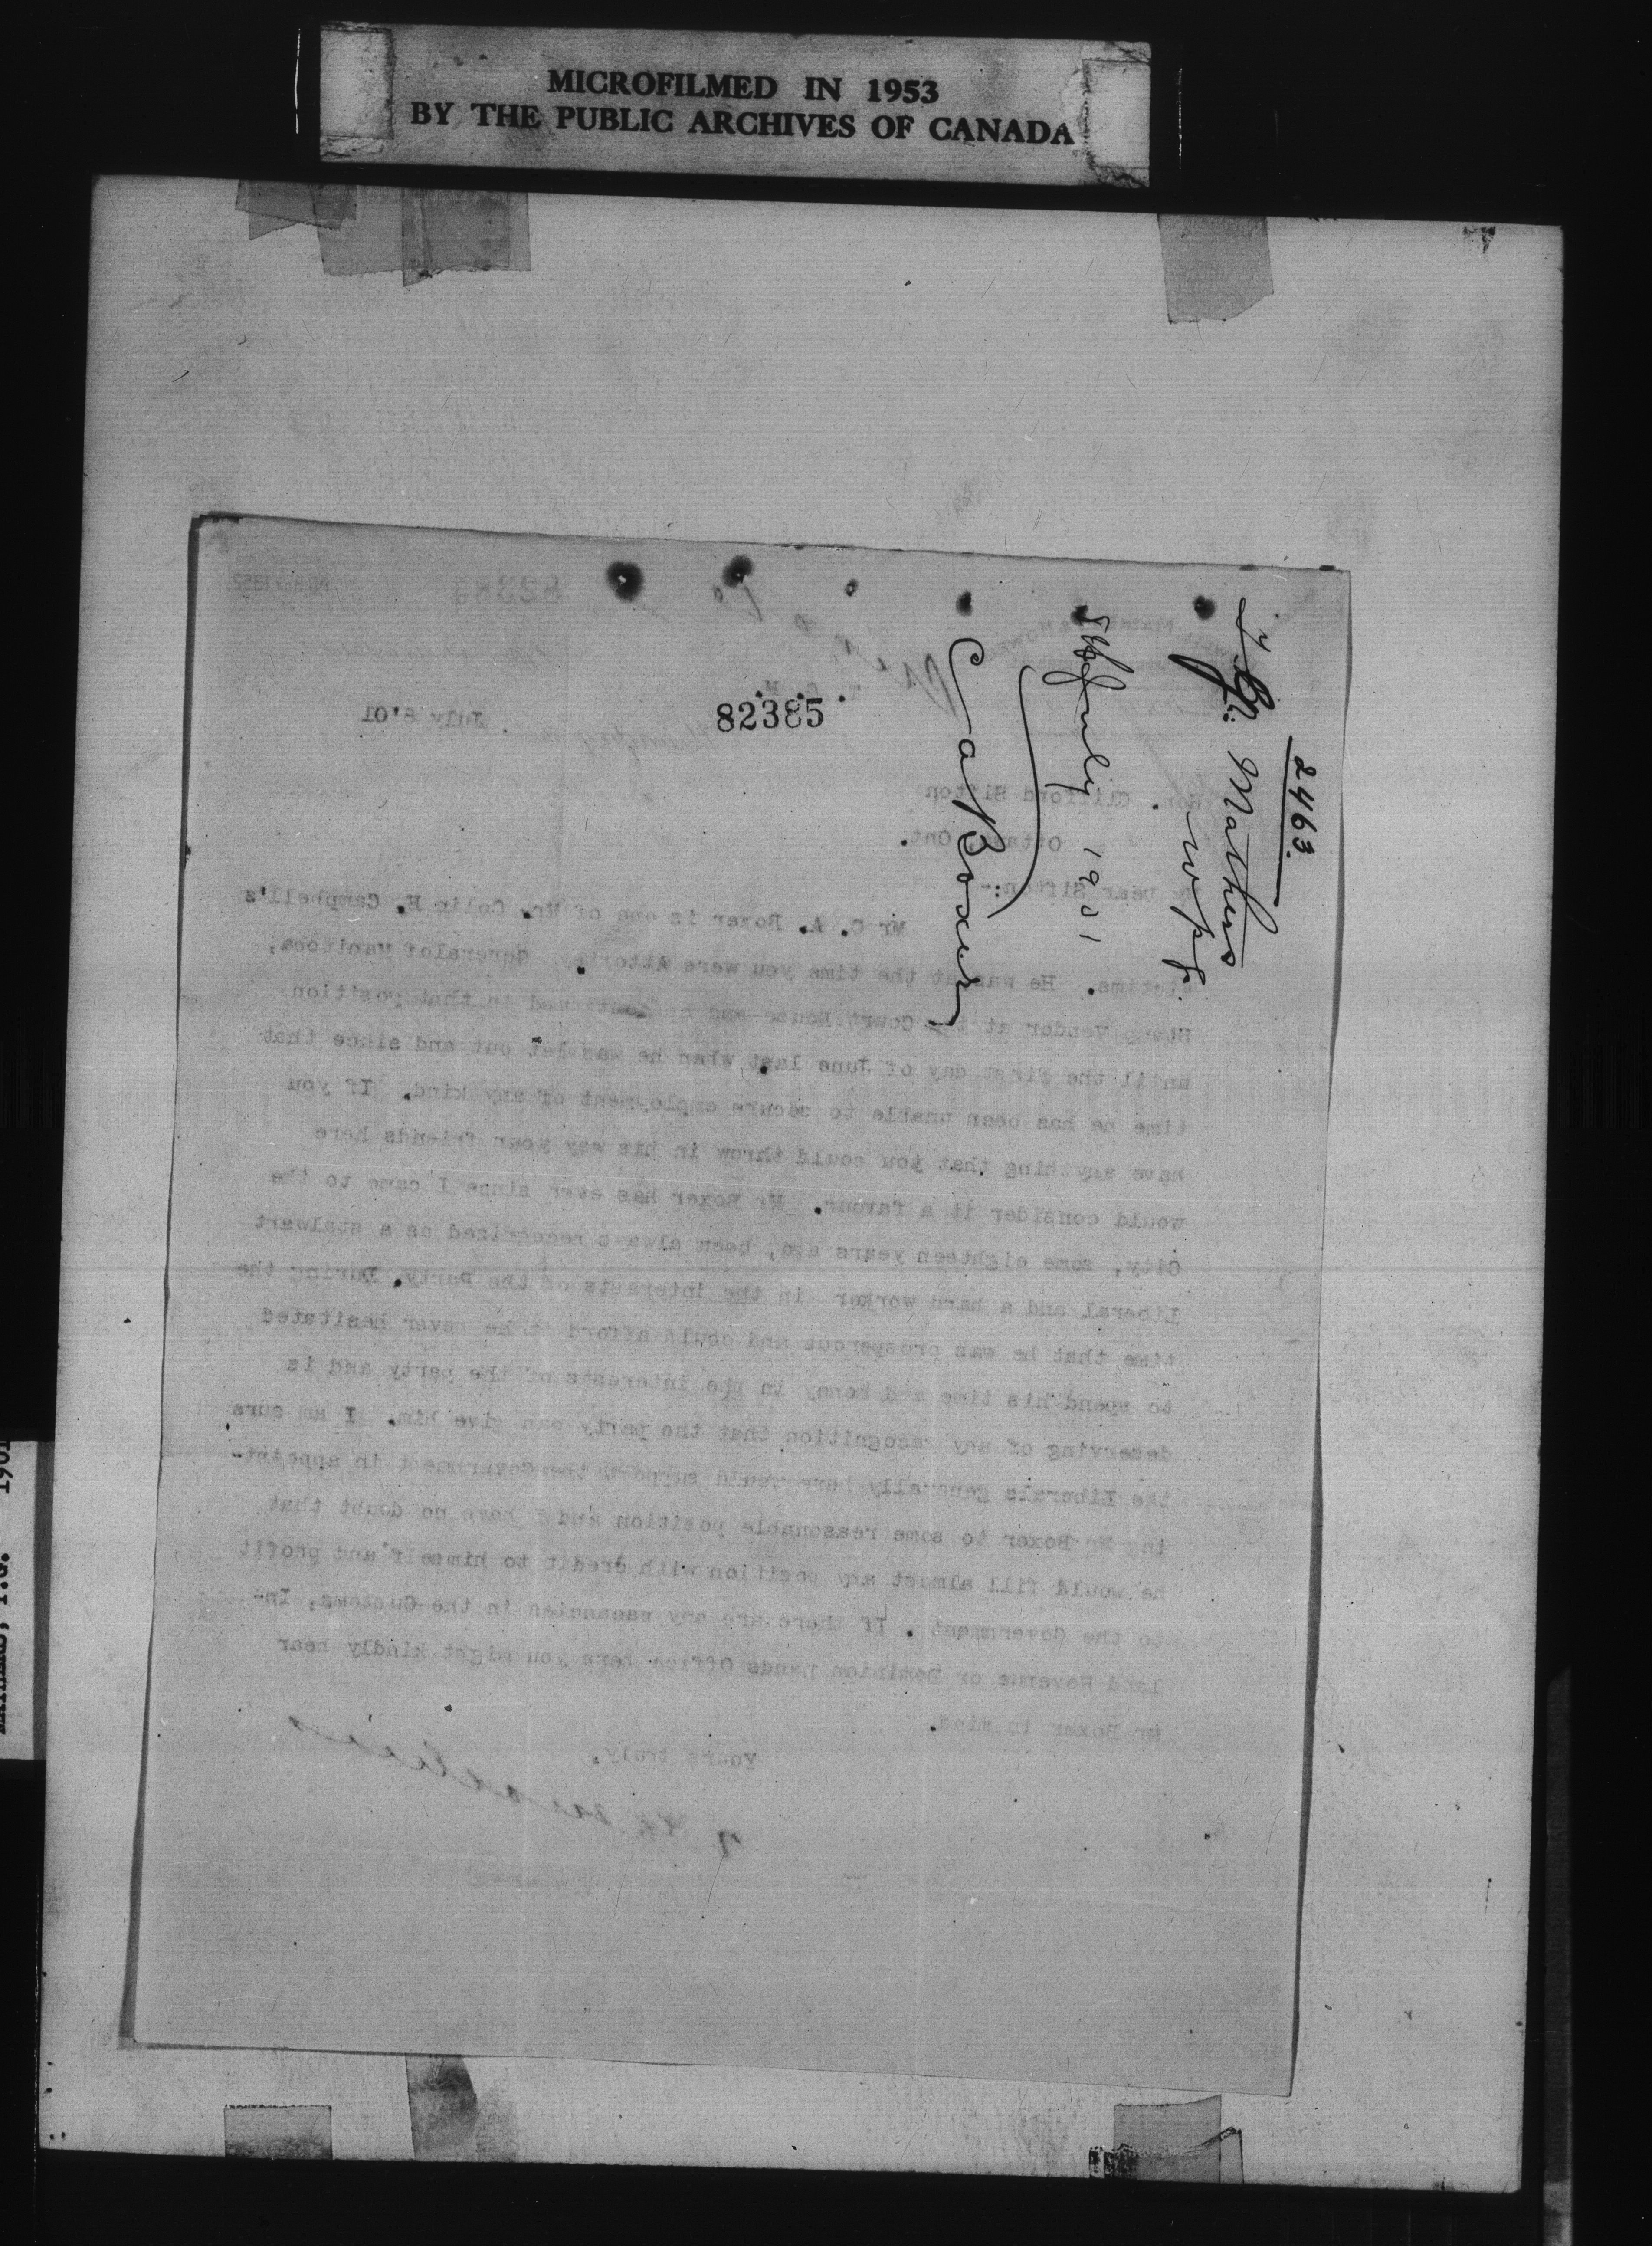 MICROFILMED IN 1953
BY THE PUBLIC ARCHIVES OF CANADA
2463.
T. G. Mathers
Wpg.
8 July 1901
C A Boxer
82385
July 8'01
Hon. Clifford Sifton
Ottawa, Ont.
Dear Sifton:-
Mr C. A. Boxer is one of Mr. Colin H. Campbell's
victims. He was at the time you were Attorney General of Manitoba,
Stamp Vendor at the Court House and he continued in that position
until the first day of June last when he was let out and since that
time he has been unable to secure employment of any kind. If you
have anything that you could throw in his way your friends here
would consider it a favour. Mr Boxer has ever since I came to the
City, some eighteen years ago, been always recognized as a stalwart
Liberal and a hard worker in the interests of the Party. During the
time that he was prosperous and could afford it he never hesitated
to spend his time and money in the interests of the party and is
deserving of any recognition that the party can give him. I am sure
the Liberals generally here would support the Government in appoint-
ing Mr Boxer to some reasonable position and I have no doubt that
he would fill almost any position with credit to himself and profit
to the Government. If there are any vacancies in the Customs, In-
land Revenue or Dominion Lands Office here you might kindly bear
Mr Boxer in mind.
Yours truly,
T. G. Mathers